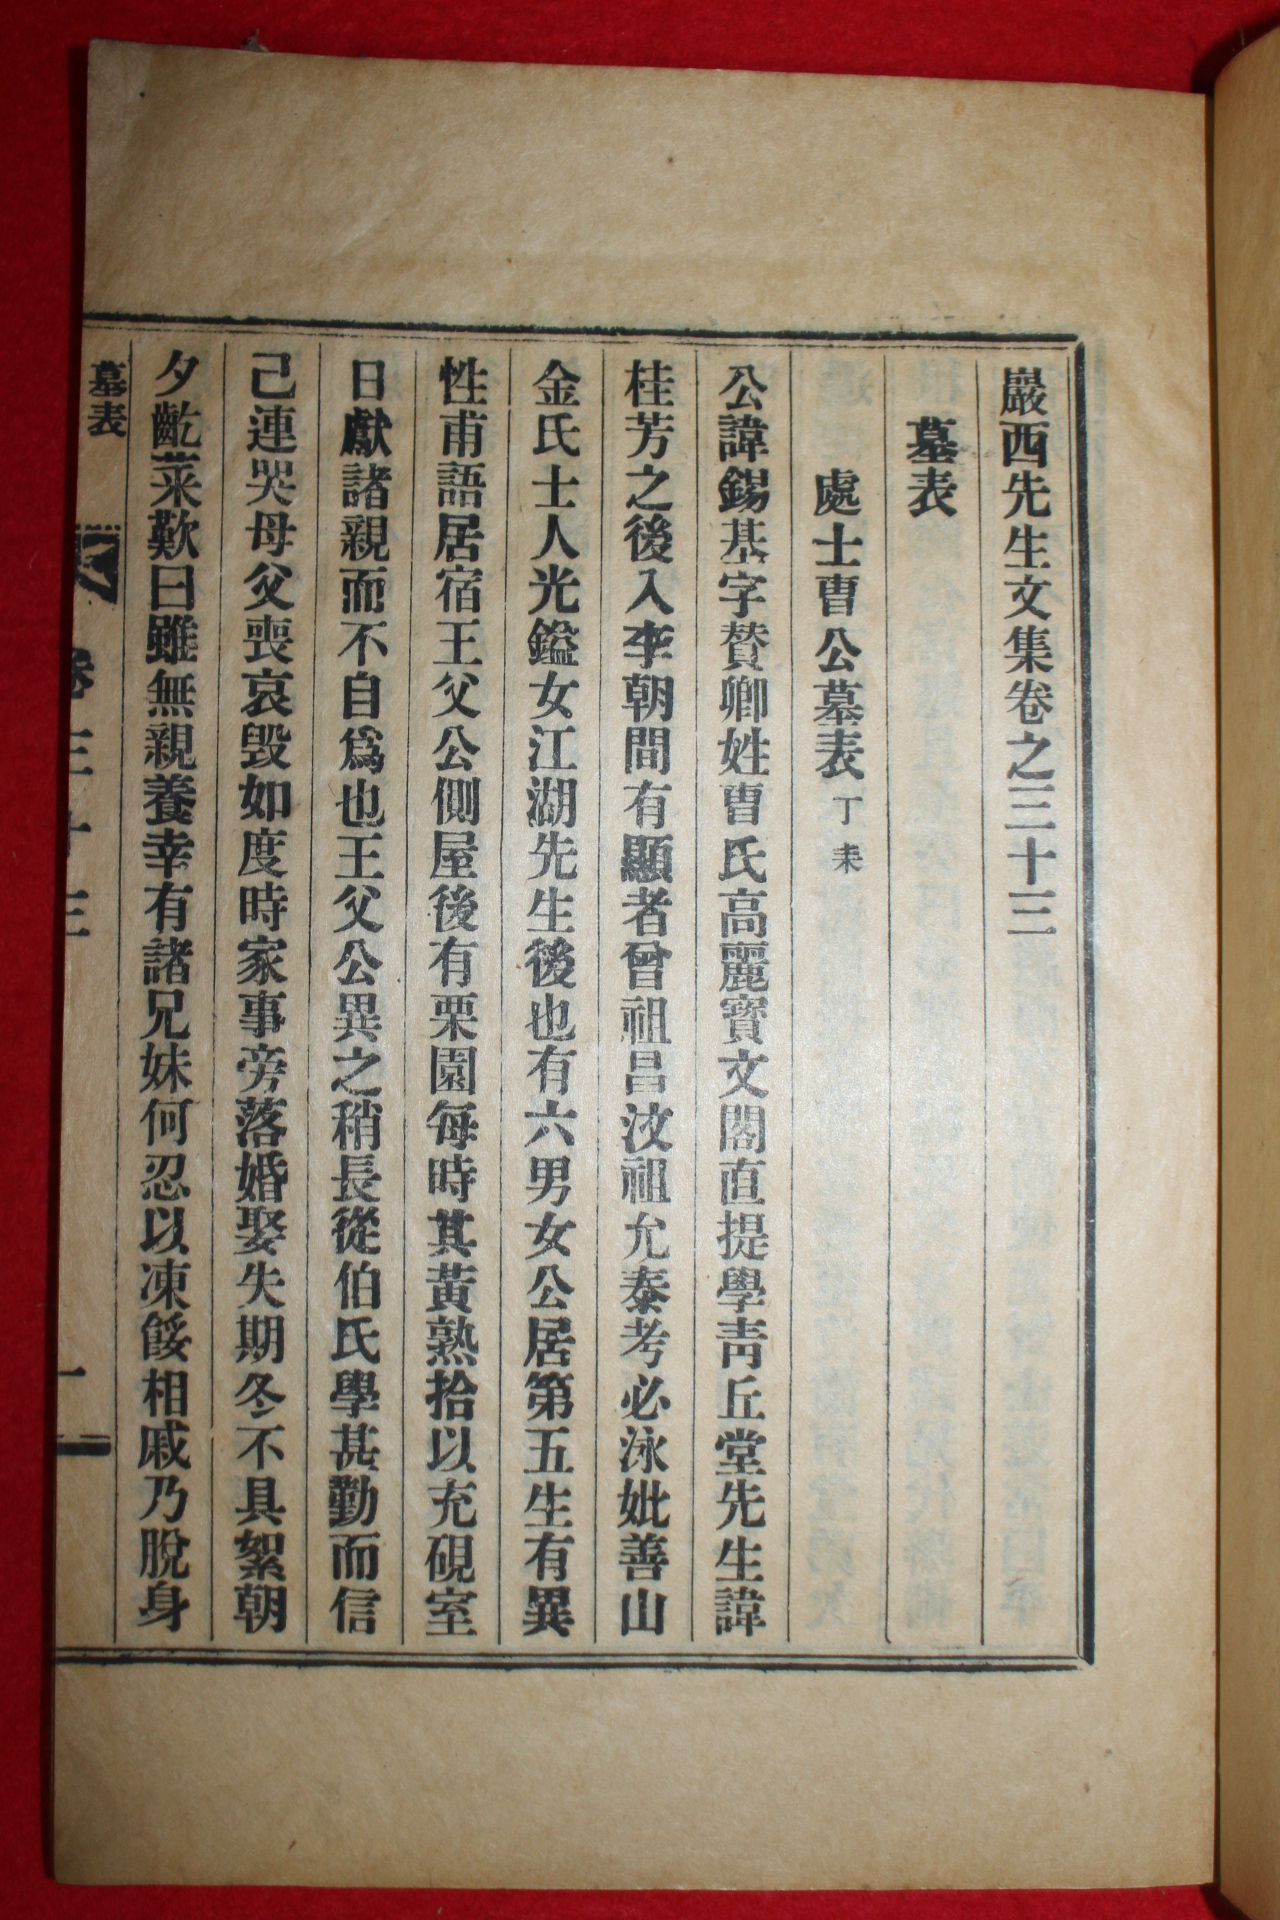 巖西先生文集卷之三十三
墓表
處士曺公墓表 丁未
公諱錫基字賛卿姓曺氏高麗寶文閣直提學靑丘堂先生諱
桂芳之後入李朝間有顯者曾祖昌汶祖允泰考必泳妣善山
金氏士人光鎰女江湖先生後也有六男女公居第五生有異
性甫語居宿王父公側屋後有栗園每時其黃熟拾以充硯室
日獻諸親而不自爲也王父公異之稍長從伯氏學甚勤而信
己連哭母父喪哀毁如度時家事旁落婚娶失期冬不具絮朝
夕齕菜歎曰雖無親養幸有諸兄妹何忍以凍餒相戚乃脫身
墓表 卷三十三 一